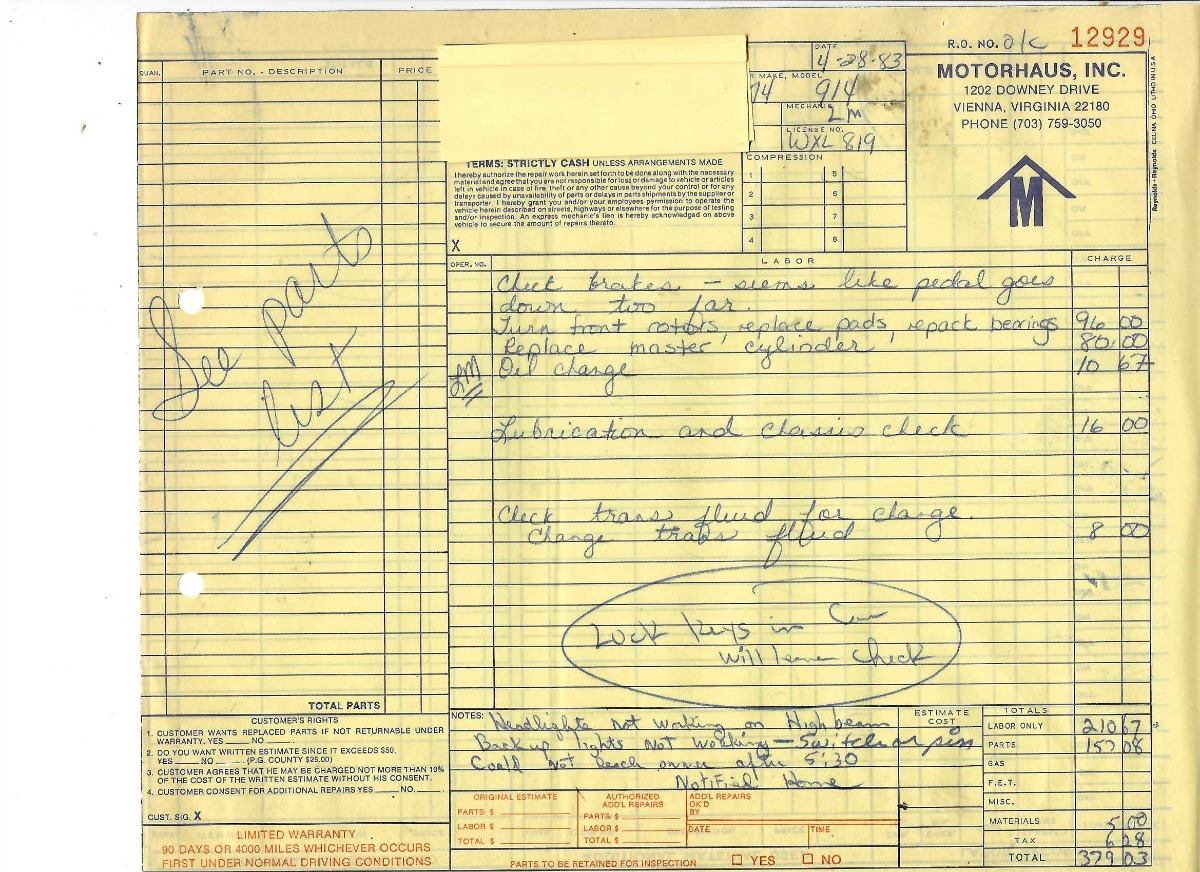 R.O. NO. 12929
MOTORHAUS, INC.
1202 DOWNEY DRIVE
VIENNA, VIRGINIA 22180
PHONE (703) 759-3050
M
Reynolds + Reynolds CELINA, OHIO LITHO IN U.S.A.
DATE
4-28-83
MAKE, MODEL
74 914
MECHANIC
LM
LICENSE NO.
WXL 819
QUAN. PART NO. - DESCRIPTION PRICE
See parts
list
TERMS: STRICTLY CASH UNLESS ARRANGEMENTS MADE
I hereby authorize the repair work herein set forth to be done along with the necessary
material and agree that you are not responsible for loss or damage to vehicle or articles
left in vehicle in case of fire, theft or any other cause beyond your control or for any
delays caused by unavailability of parts or delays in parts shipments by the supplier or
transporter. I hereby grant you and/or your employees permission to operate the
vehicle herein described on streets, highways or elsewhere for the purpose of testing
and/or inspection. An express mechanic's lien is hereby acknowledged on above
vehicle to secure the amount of repairs thereto.
X
COMPRESSION
1 5
2 6
3 7
4 8
OPER. NO. LABOR CHARGE
Check brakes - seems like pedal goes
down too far.
Turn front rotors, replace pads, repack bearings 96 00
Replace master cylinder 80.00
LM Oil change 10 67
Lubrication and chassis check 16 00
Check trans fluid for change.
Change trans fluid 8 00
Lock keys in Car
will leave check
TOTAL PARTS
CUSTOMER'S RIGHTS
1. CUSTOMER WANTS REPLACED PARTS IF NOT RETURNABLE UNDER
WARRANTY. YES ____ NO ____
2. DO YOU WANT WRITTEN ESTIMATE SINCE IT EXCEEDS $50.
YES ____ NO ____ (P.G. COUNTY $25.00)
3. CUSTOMER AGREES THAT HE MAY BE CHARGED NOT MORE THAN 10%
OF THE COST OF THE WRITTEN ESTIMATE WITHOUT HIS CONSENT.
4. CUSTOMER CONSENT FOR ADDITIONAL REPAIRS YES ____ NO ____
CUST. SIG. X
LIMITED WARRANTY
90 DAYS OR 4000 MILES WHICHEVER OCCURS
FIRST UNDER NORMAL DRIVING CONDITIONS
NOTES: Headlights not working on High beam
Back up lights not working - switch or pin
Could not reach owner after 5:30
Notified Home
ESTIMATE
COST
ORIGINAL ESTIMATE
PARTS $
LABOR $
TOTAL $
AUTHORIZED
ADD'L REPAIRS
PARTS $
LABOR $
TOTAL $
ADD'L REPAIRS
OK'D
BY
DATE TIME
PARTS TO BE RETAINED FOR INSPECTION YES NO
TOTALS
LABOR ONLY 210 67
PARTS 157 08
GAS
F.E.T.
MISC.
MATERIALS 5 00
TAX 6 28
TOTAL 379 03